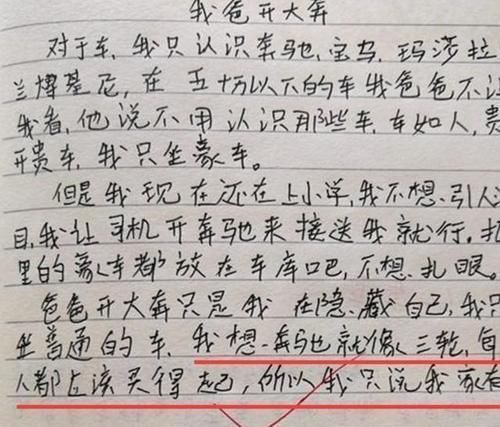 我爸开大奔
对于车,我只认识奔驰,宝马,玛莎拉
兰博基尼,在五十万以下的车我爸爸不让
我看,他说不用认识那些车,车如人,贵
开贵车,我只坐豪车。
但是我现在还在上小学,我不想引人注
目,我让司机开奔驰来接送我就行。把
里的豪车都放在车库吧,不想扎眼。
爸爸开大奔只是我在隐藏自己,我只
坐普通的车,我想奔驰就像三轮,每
人都应该买得起,所以我只说我家有